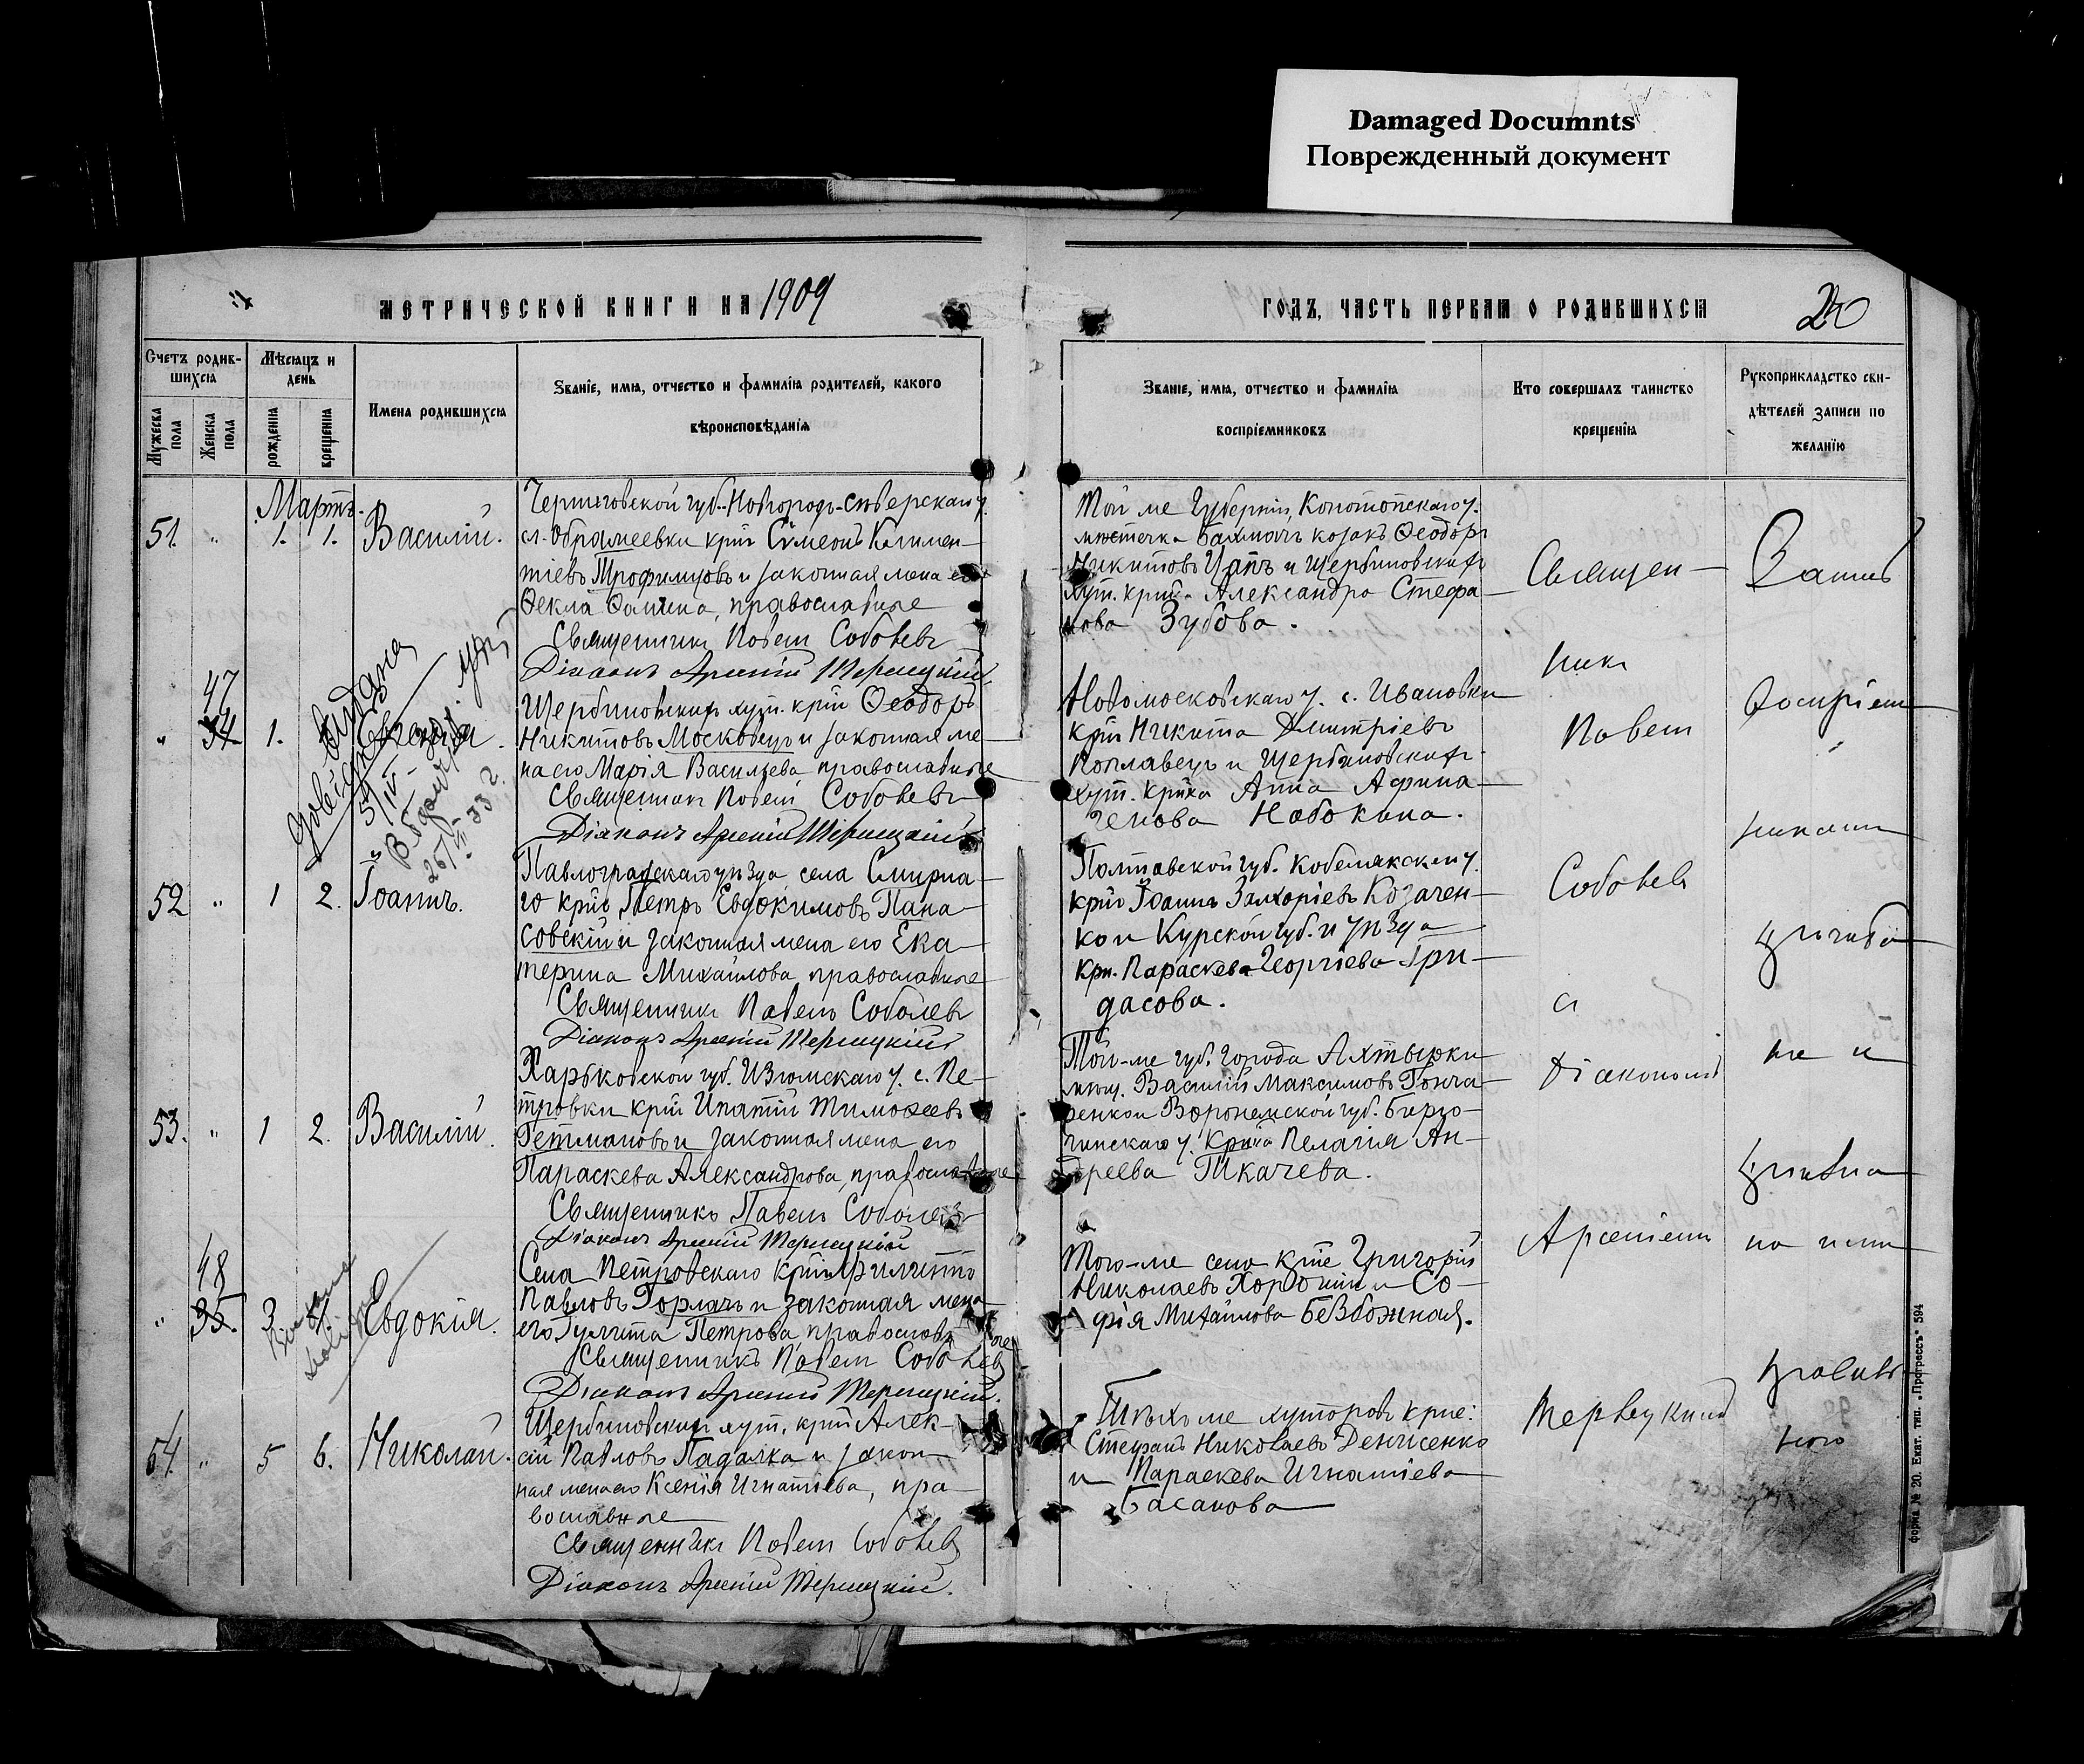 Damaged Documnts
Поврежденный документ
МЕТРИЧЕСКОЙ КНИГИ НА 1909
ГОДЪ, ЧАСТЬ ПЕРВАЯ О РОДИВШИХСЯ
Счетъ родив-
шихся
Мужеска пола
Женска пола
Мѣсяцъ и
день
рожденія
крещенія
Имена родившихся
Званіе, имя, отчество и фамилія родителей, какого
вѣроисповѣданія
Званіе, имя, отчество и фамилія
воспріемниковъ
Кто совершалъ таинство
крещенія
Рукоприкладство сви-
дѣтелей записи по
желанію
Мартъ.
51. " 1. 1. Василій.
Черниговской губ. Новгород-Сѣверскаго у.
сл. Обрамеевки кр҃н Симеонъ Климен-
тіевъ Трофимцовъ и законная жена его
Ѳекла Ѳомина, православные
Священникъ Павелъ Соболевъ
Діаконъ Арсеній
Той же Губерніи, Конотопскаго у.
мѣстечка Бахмачъ козакъ Ѳеодоръ
Никитовъ Цапъ и Щербиновскихъ
хут. Александра Стефа-
нова Зубова.
47
" 34 1. Евгенія.
Щербиновскихъ хут. кр҃н Ѳеодоръ
Никитовъ Московецъ и законная же-
на его Марія Васильева православные
Священникъ Павелъ Соболевъ
Діаконъ Арсеній
Новомосковскаго у. с. Ивановки
кр҃н Никита Дмитріевъ
Коплавецъ и Щербиновскихъ
хут. Анна Афина-
генова Набокина.
52 " 1 2. Іоаннъ.
Павлоградскаго уѣзда, села Смирна-
го кр҃н Петръ Евдокимовъ Пана-
совскій и законная жена его Ека-
терина Михайлова, православные
Священникъ Павелъ Соболевъ
Діаконъ Арсеній
Полтавской губ. Кобелякскаго у.
кр҃н Іоаннъ Захаріевъ Козачен-
ко и Курской губ. и уѣзда
кр҃н. Параскева Георгіева Гри-
дасова.
53. " 1 2. Василій.
Харьковской губ. Изюмскаго у. с. Пе-
тровки кр҃н Ипатій Тимоѳеевъ
Гетмановъ и законная жена его
Параскева Александрова, православные
Священникъ Павелъ Соболевъ
Діаконъ Арсеній
Той-же губ. города Ахтырки
мѣщ. Василій Максимовъ Гонча-
ренко и Воронежской губ. Бирю-
чинскаго у. Пелагія Ан-
дреева Ткачева.
48
" 35. 3 Евдокія.
Села Петровскаго кр҃н Филиппъ
Павловъ Горлачъ и законная жена
его Гулита Петрова, православные
Священникъ Павелъ Соболевъ
Діаконъ Арсеній
Того-же села Григорій
Николаевъ и Со-
фія Михайлова Безбожная.
54. " 5 6. Николай.
Щербиновскихъ хут. кр҃н Алек-
сій Павловъ Падалка и закон-
ная жена его Ксенія Игнатіева, пра-
вославные
Священникъ Павелъ Соболевъ
Діаконъ Арсеній
Тѣхъ же хуторовъ кр҃не:
Стефанъ Николаевъ Денисенко
и Параскева Игнатіева
Басанова
Священ-
никъ
Павелъ
Соболевъ
съ
Діакономъ
Арсеніемъ
воспріем-
никами
не и
Форма № 20. Екат. тип. „Прогрессъ" 594